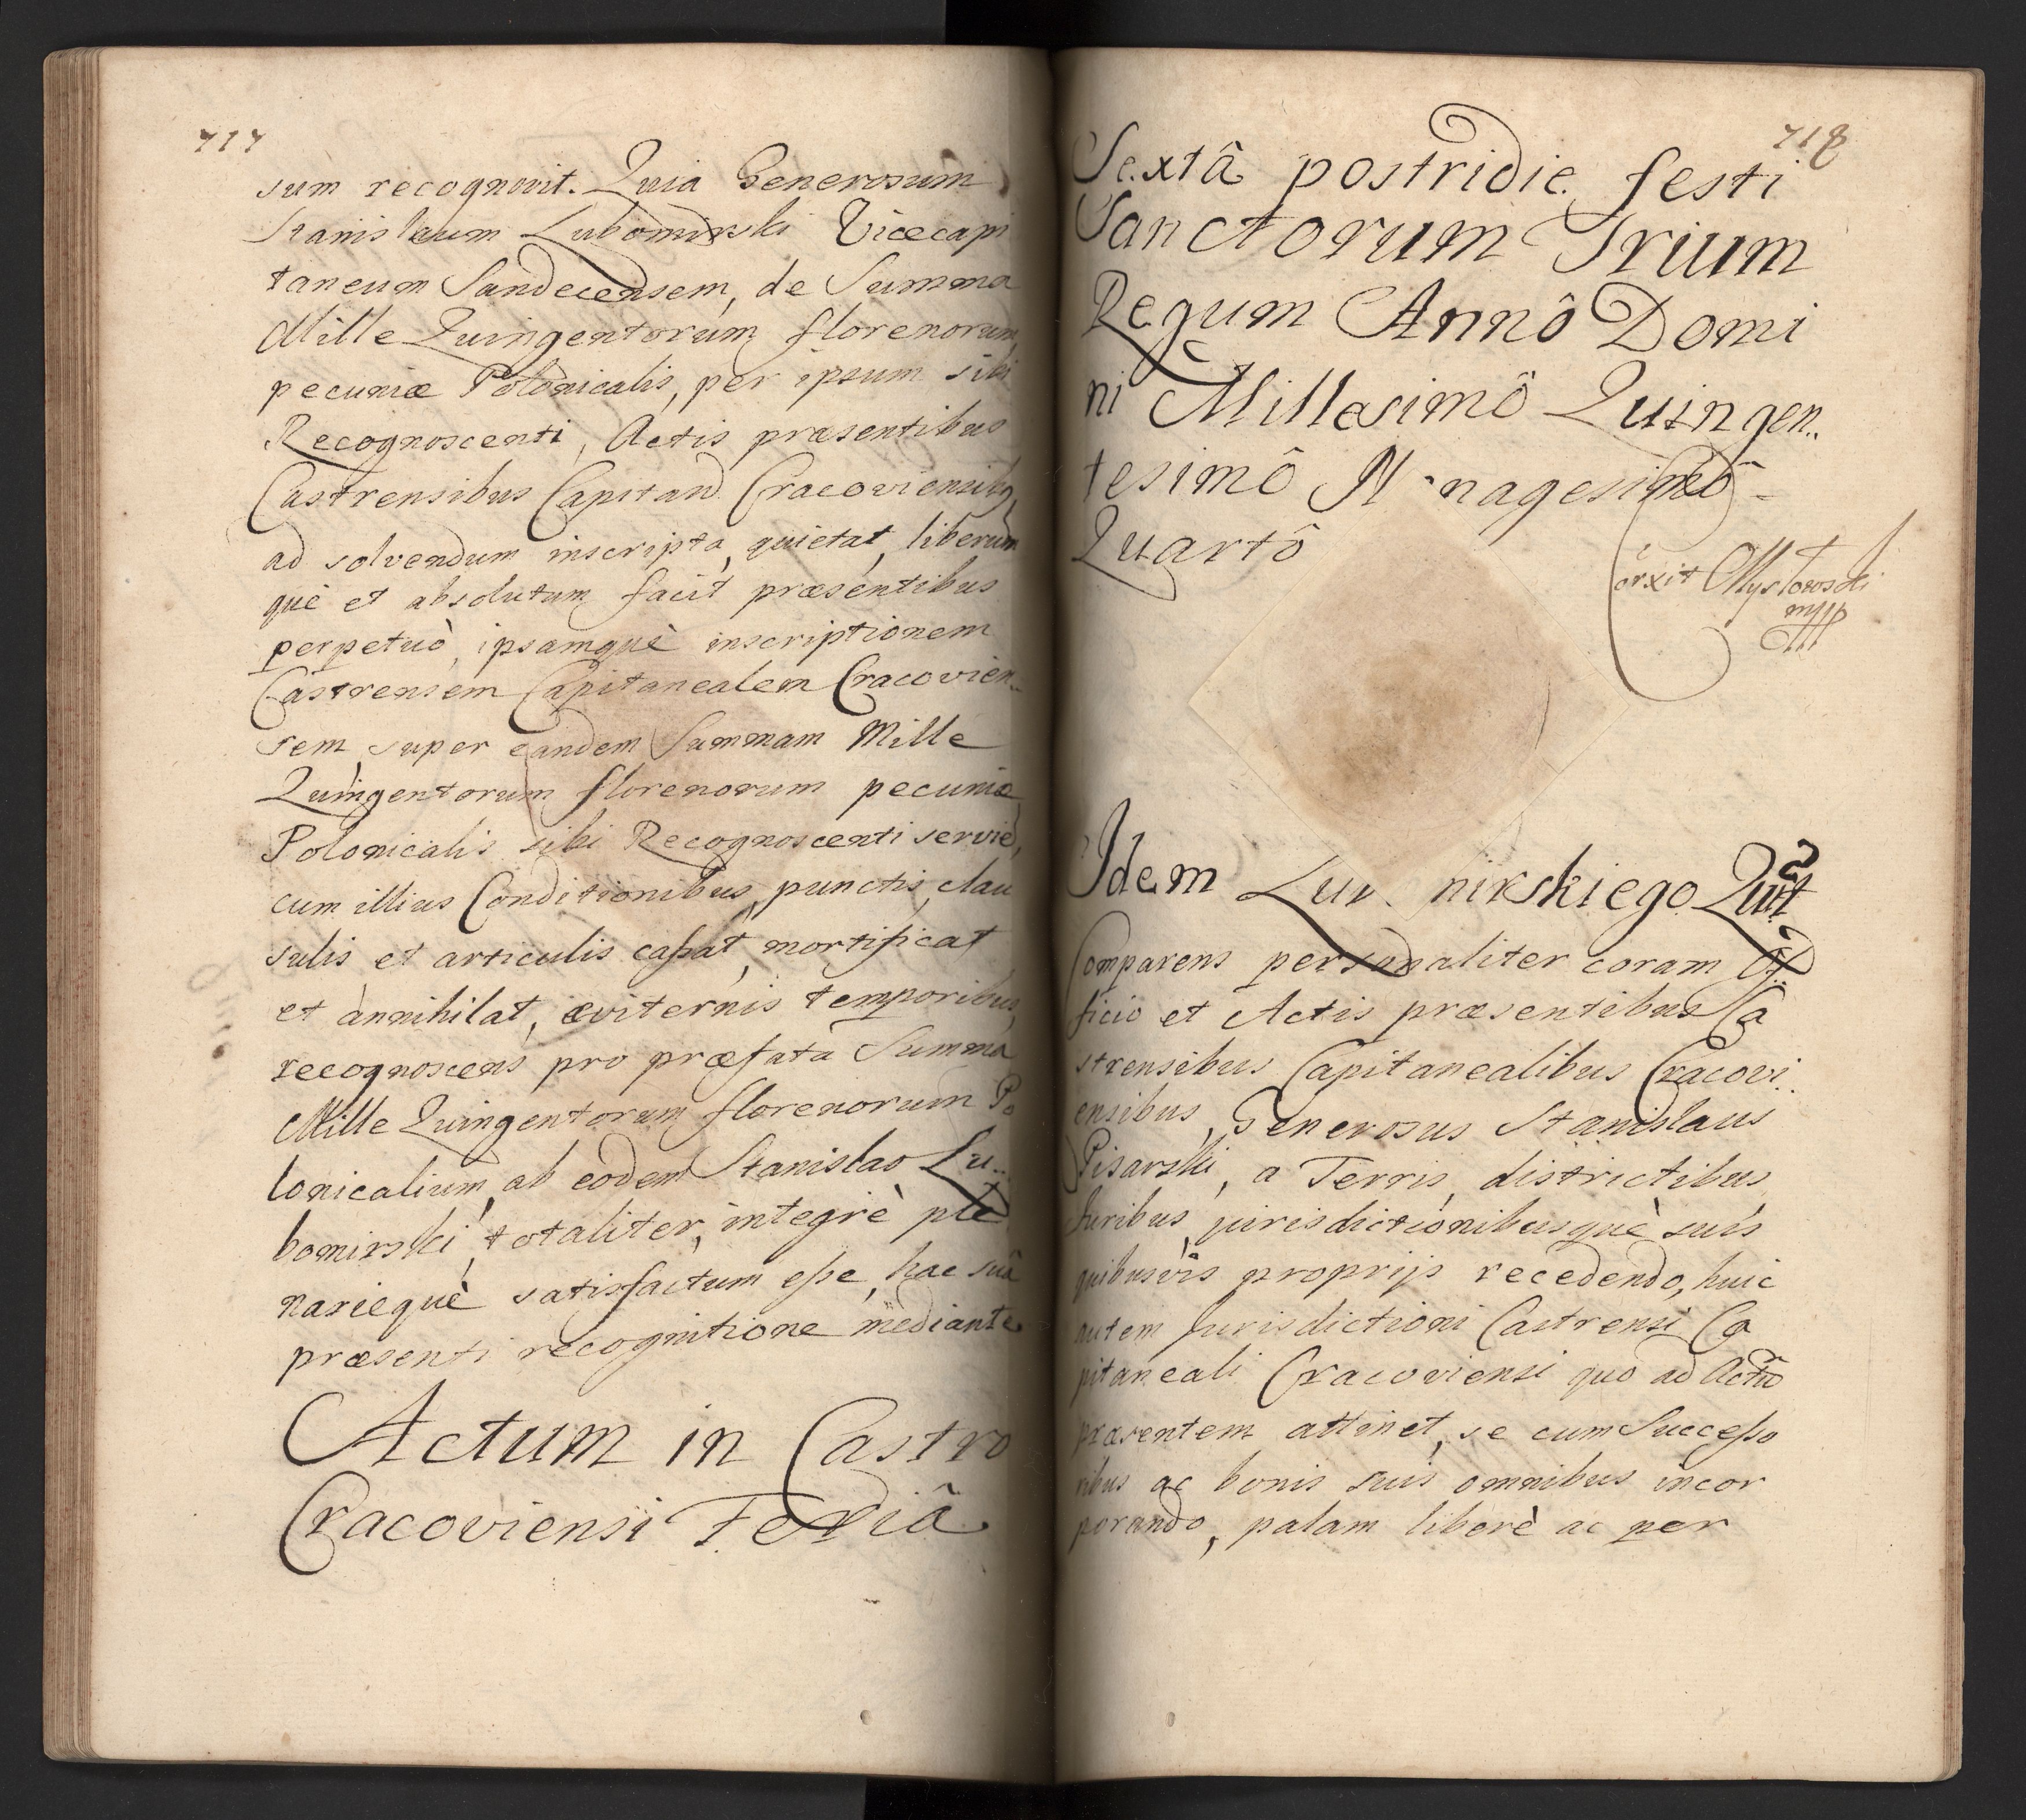 717
sum recognovit. Quia Generosum
Stanislaum Lubomirski Vicecapi
taneum Sandecensem, de Summa
Mille Quingentorum florenorum
pecuniæ Polonicalis, per ipsum sibi
Recognoscenti, Actis præsentibus
Castrensibus Capitan Cracoviensibq
ad solvendum inscripta, quietat, liberum
què et absolutum facit præsentibus
perpetuò, ipsamquè inscriptionem
Castrensem Capitanealem Cracovien..
sem, super eandem Summam Mille
Quingentorum florenorum pecuniæ
Polonicalis sibi Recognoscenti servien,
cum illius Conditionibus, punctis, clau
sulis et articulis caſsat, mortificat
et annihilat, æviternis temporibus,
recognoscens pro præfata Summa
Mille Quingentorum florenorum Po
lonicalium, ab eodem Stanislao Lu..
bomirski, totaliter, integrè ple
nariequè satisfactum eſse, hac suâ
præsenti recognitione mediante
Actum in Castro
Cracoviensi Feriâ
718
Sextâ postridie festi
Sanctorum Trium
Regum Annô Domi
ni Millesimô Quingen..
tesimô N nagesimô
Quartô
Mystowski
mpp
Idem Lu nirskiego Quit
Comparens personaliter coram Of..
ficio et Actis præsentibus Ca
strensibus Capitanealibus Cracovi..
ensibus, Generosus Stanislaus
Pisarski, a Terris, districtibus
Juribus, jurisdictionibusquè suis
quibusvis proprijs recedendo, huic
autem Jurisdictioni Castrensi Ca
pitaneali Cracoviensi quo ad Actũ
præsentem attinet, se cum Succeſso
ribus ac bonis suis omnibus incor
porando, palam liberè ac per